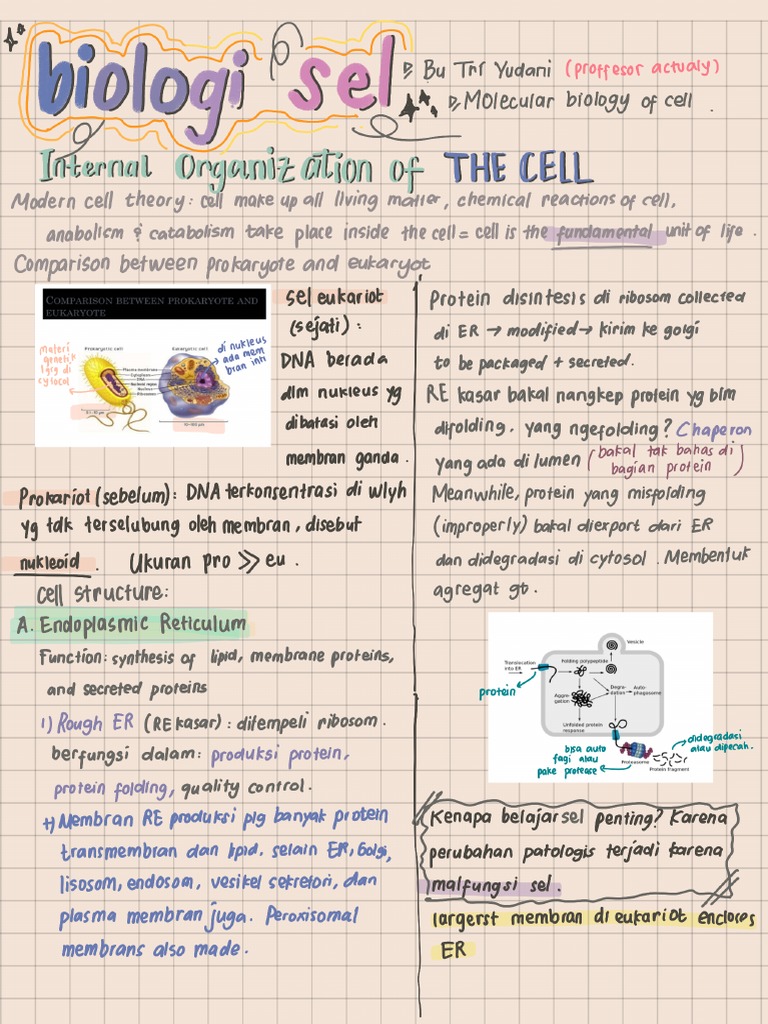 biologi sel
Bu Tri Yudani (proffesor actualy)
Molecular biology of cell .
Internal Organization of THE CELL
Modern cell theory: cell make up all living matter, chemical reactions of cell,
anabolism & catabolism take place inside the cell = cell is the fundamental unit of life .
Comparison between prokaryote and eukaryot
COMPARISON BETWEEN PROKARYOTE AND
EUKARYOTE
Prokaryotic cell
Eukaryotic cell
materi
genetik
lgsg di
cytosol
di nukleus
ada mem
bran inti
Plasma membrane
Cytoplasm
DNA
Nucleoid region
Nucleus
Ribosomes
sel eukariot
(sejati) :
DNA berada
dlm nukleus yg
dibatasi oleh
membran ganda .
Prokariot (sebelum) : DNA terkonsentrasi di wlyh
yg tdk terselubung oleh membran , disebut
nukleoid . Ukuran pro >> eu .
Cell structure:
A. Endoplasmic Reticulum
Function: synthesis of lipid, membrane proteins,
and secreted proteins
1) Rough ER (RE kasar) : ditempeli ribosom .
berfungsi dalam: produksi protein,
protein folding, quality control.
+) Membran RE produksi plg banyak protein
transmembran dan lipid. selain ER, Golgi,
lisosom, endosom, vesikel sekretori, dan
plasma membran juga. Peroxisomal
membrans also made.
Protein disintesis di ribosom collected
di ER → modified → kirim ke golgi
to be packaged + secreted.
RE kasar bakal nangkep protein yg blm
difolding. yang ngefolding? Chaperon
yang ada di lumen (bakal tak bahas di
bagian protein)
Meanwhile, protein yang misfolding
(improperly) bakal diexport dari ER
dan didegradasi di cytosol . Membentuk
agregat gb .
Vesicle
Translocation
into ER
Folding polypeptide
protein
Aggre-
gation
Degra-
dation
Auto-
phagosome
Unfolded protein
response
bisa auto
fagi alau
pake protease
Proteasome
Protein fragment
didegradasi
alau dipecah.
Kenapa belajar sel penting? Karena
perubahan patologis terjadi karena
malfungsi sel.
largerst membran di eukariot encloses
ER